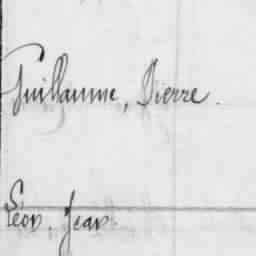 Guillaume, Pierre.
Léon, Jean.